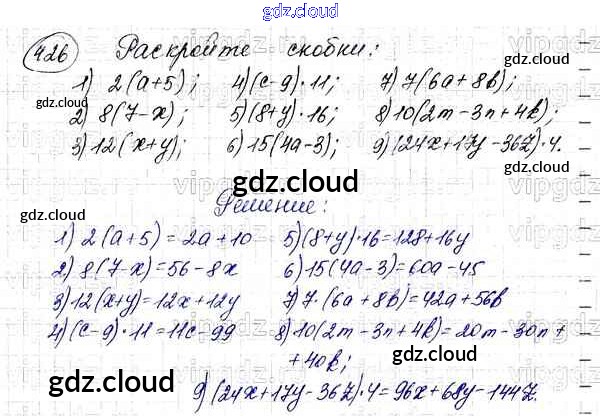 gdz.cloud
426 Раскройте скобки:
1) 2(a+5); 4)(c-9)·11; 7) 7(6a+8b);
gdz.cloud gdz.cloud
2) 8(7-x); 5)(8+y)·16; 8)10(2m-3n+4k);
3)12(x+y); 6)15(4a-3); 9)(24x+17y-36z)·4.
gdz.cloud gdz.cloud
Решение:
1) 2(a+5)=2a+10 5)(8+y)·16=128+16y
2) 8(7-x)=56-8x 6)15(4a-3)=60a-45
3)12(x+y)=12x+12y 7)7·(6a+8b)=42a+56b
4)(c-9)·11=11c-99 8)10(2m-3n+4k)=20m-30n+
+40k;
gdz.cloud gdz.cloud
9)(24x+17y-36z)·4=96x+68y-144z.
gdz.cloud